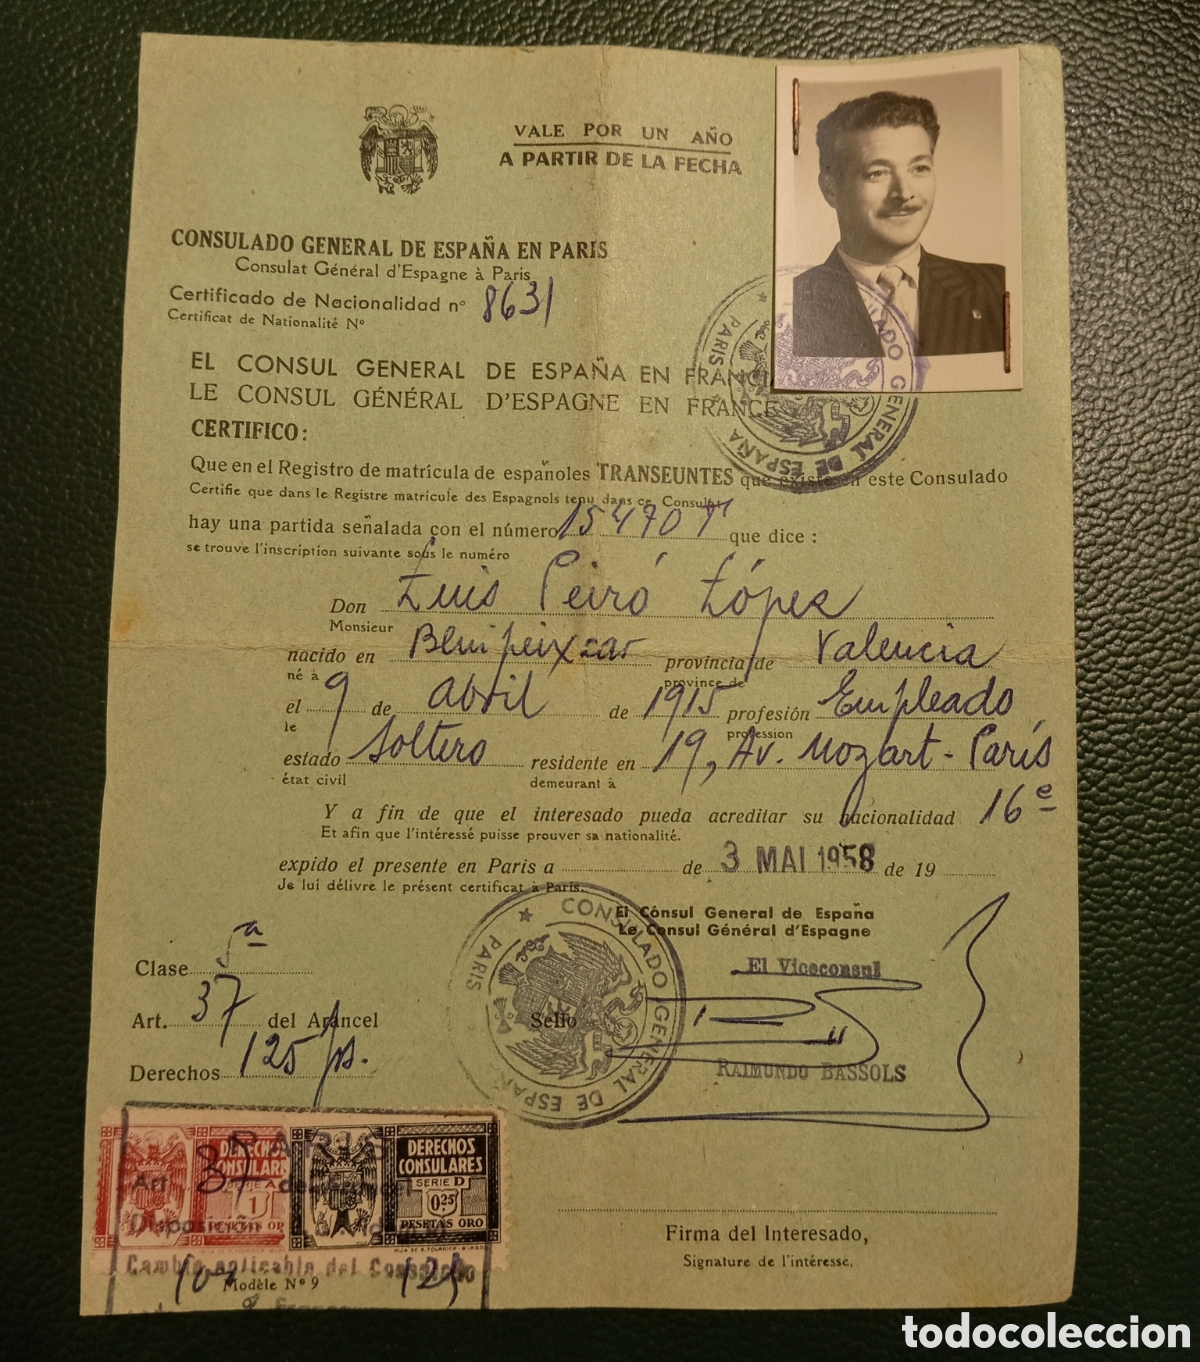 VALE POR UN AÑO
A PARTIR DE LA FECHA
CONSULADO GENERAL DE ESPAÑA EN PARIS
Consulat Général d'Espagne à Paris
Certificado de Nacionalidad nº 8631
Certificat de Nationalité Nº
EL CONSUL GENERAL DE ESPAÑA EN FRANCI
LE CONSUL GÉNÉRAL D'ESPAGNE EN FRANCE
CERTIFICO:
CONSULADO GENERAL DE ESPAÑA PARIS
Que en el Registro de matrícula de españoles TRANSEUNTES que existe en este Consulado
Certifie que dans le Registre matrícule des Espagnols tenu dans ce Consulat
hay una partida señalada con el número 154707 que dice :
se trouve l'inscription suivante sous le numéro
Don Luis Peiró López
Monsieur
nacido en provincia de Valencia
né à province de
el 9 de abril de 1915 profesión Empleado
le profession
estado Soltero residente en 19, Av. Mozart - París
état civil demeurant à
Y a fin de que el interesado pueda acreditar su nacionalidad 16e
Et afin que l'intéressé puisse prouver sa nationalité.
expido el presente en Paris a de 3 MAI 1958 de 19
Je lui délivre le présent certificat à Paris.
El Cónsul General de España
Le Consul Général d'Espagne
El Viceconsul
Clase 5ª
Art. 37 del Arancel
Sello
CONSULADO GENERAL DE ESPAÑA PARIS
Derechos 125 ps.
RAIMUNDO BASSOLS
PARIS
DERECHOS CONSULARES
SERIE A
1
PESETAS ORO
DERECHOS CONSULARES
SERIE D
0.25
PESETAS ORO
Art. 37
Disposición
Cambio aplicable del
Modèle Nº 9
Firma del Interesado,
Signature de l'intéressé.
todocoleccion